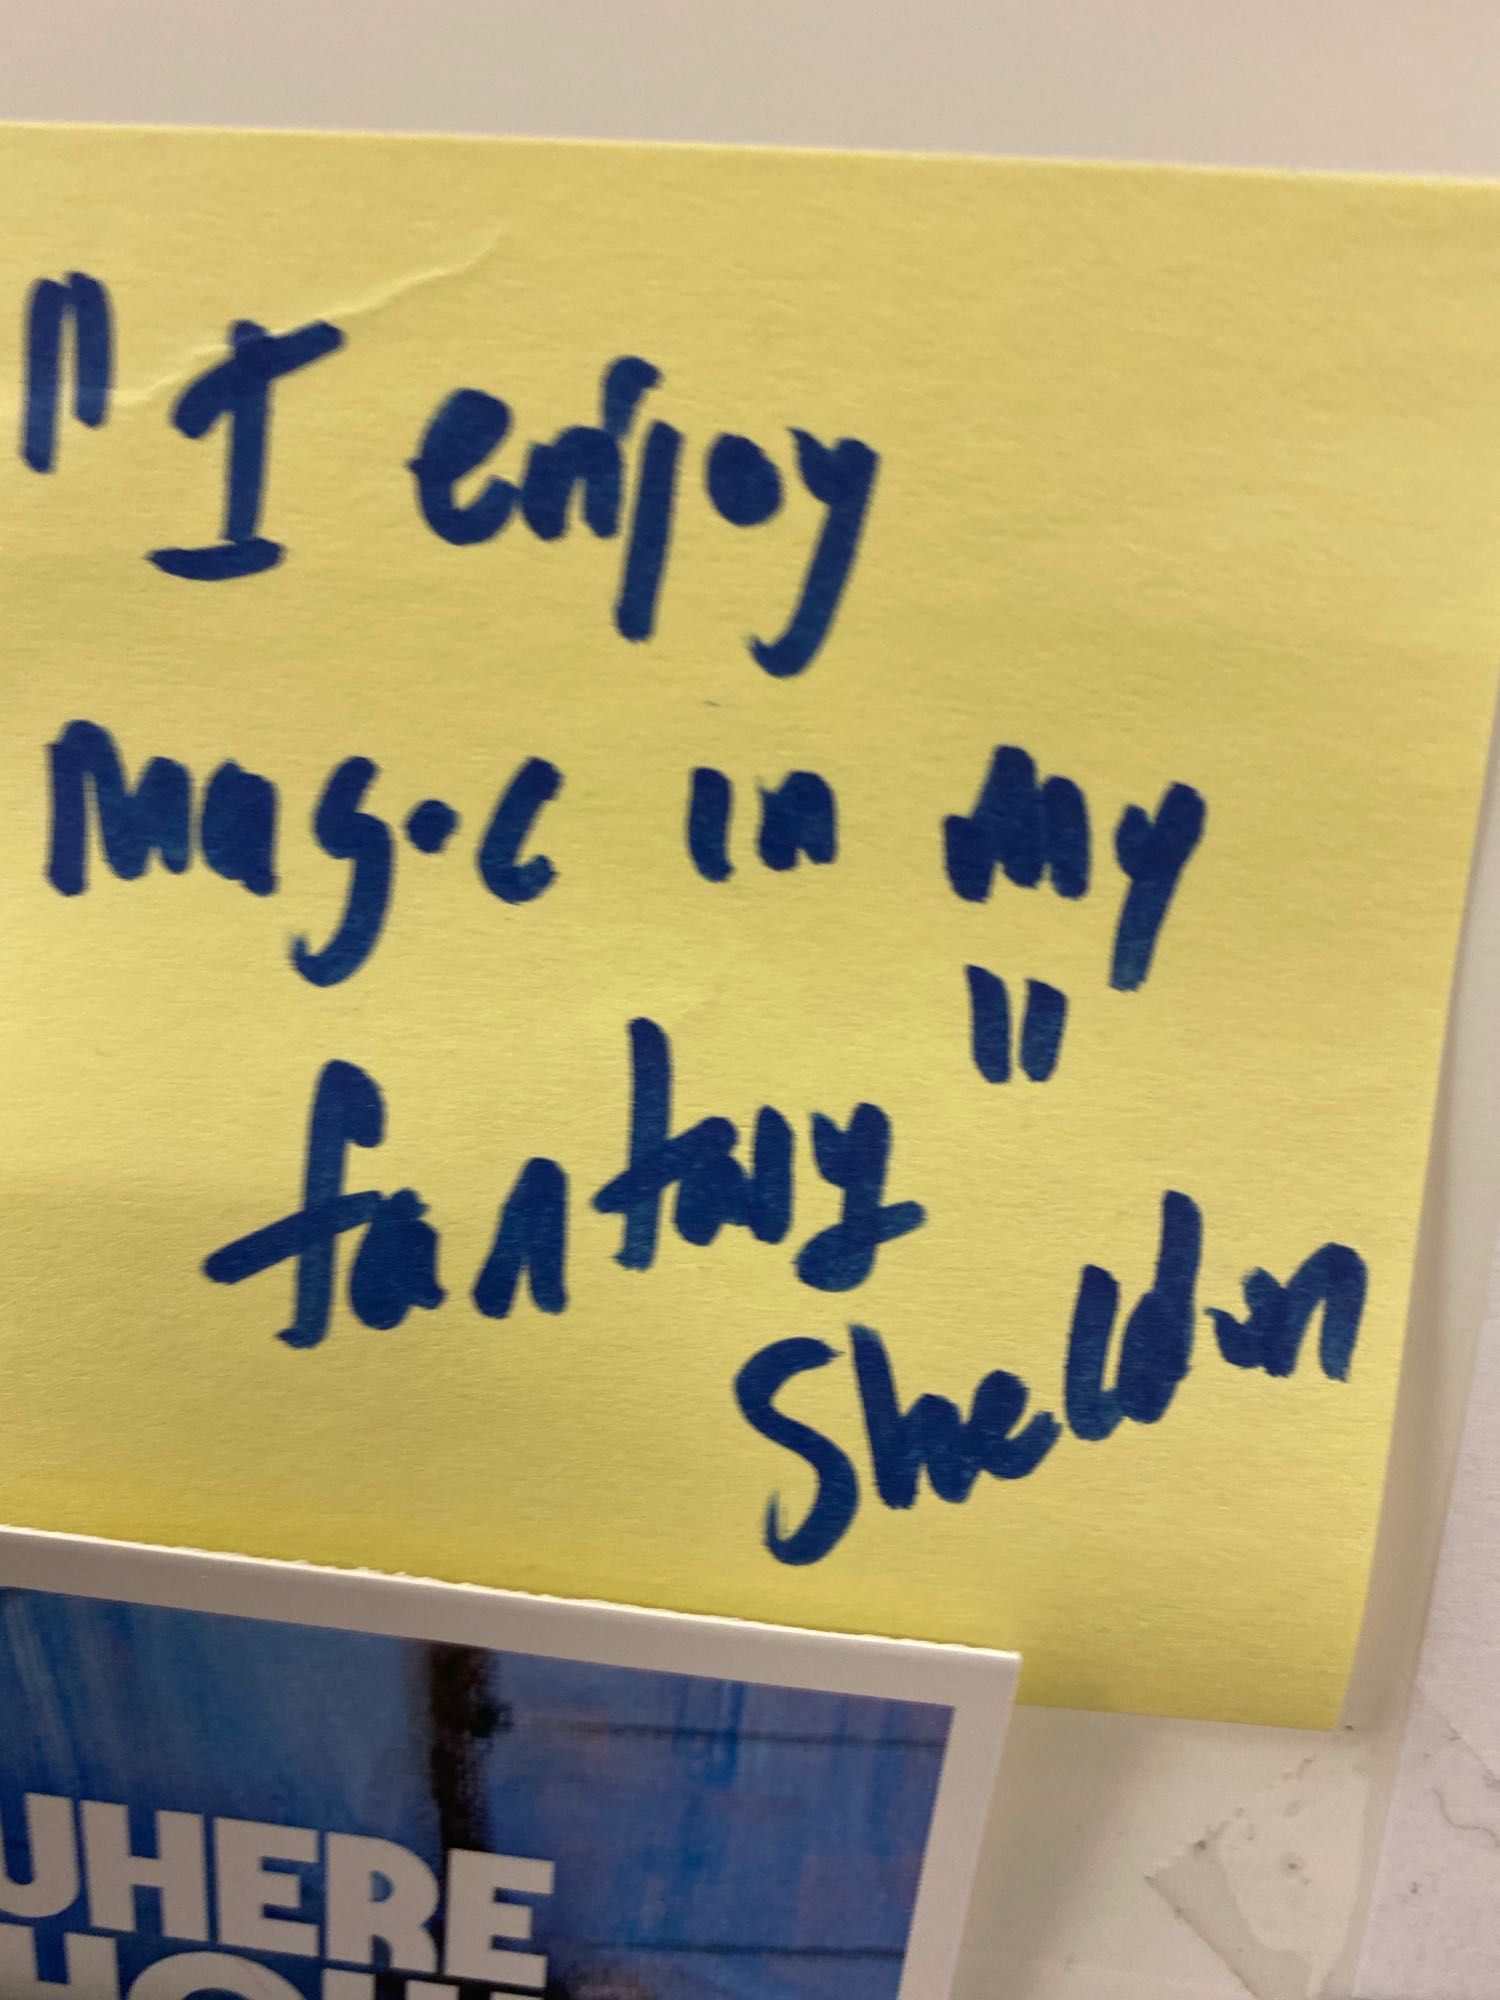 "I enjoy
Magic in my
fantasy"
Sheldon
WHERE